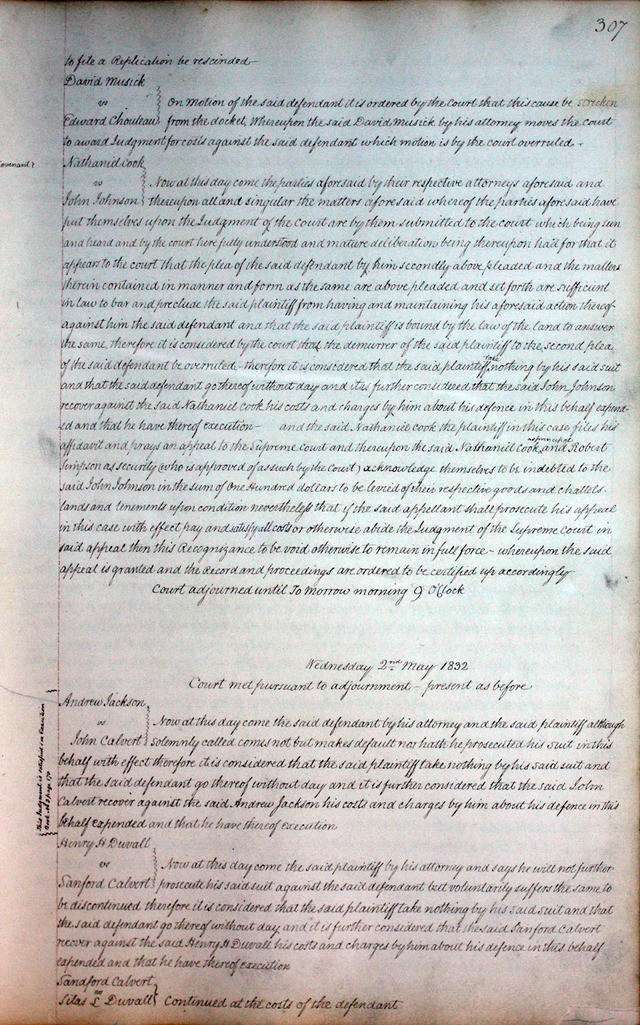 307
to file a Replication be rescinded
David Musick
vs
On Motion of the said defendant it is ordered by the Court that this cause be stricken
Edward Chouteau from the docket, Whereupon the said David Musick by his attorney moves the court
to award Judgment for costs against the said defendant which motion is by the court overruled.
Covenant
Nathaniel Cook
vs
Now at this day come the parties aforesaid by their respective attorneys aforesaid and
John Johnson thereupon all and singular the matters aforesaid whereof the parties aforesaid have
put themselves upon the Judgment of the Court are by them submitted to the court which being seen
and heard and by the court here fully understood and mature deliberation being thereupon had for that it
appears to the court that the plea of the said defendant by him secondly above pleaded and the matters
therein contained in manner and form as the same are above pleaded and set forth are sufficient
in law to bar and preclude the said plaintiff from having and maintaining his aforesaid action thereof
against him the said defendant and that the said plaintiff is bound by the law of the land to answer
the same, therefore it is considered by the court that the demurrer of the said plaintiff to the second plea
of the said defendant be overruled - therefore it is considered that the said plaintiff take nothing by his said suit
and that the said defendant go thereof without day and it is further considered that the said John Johnson
recover against the said Nathaniel Cook his costs and charges by him about his defence in this behalf expend-
ed and that he have thereof execution - and the said Nathaniel Cook the plaintiff in this case files his
affidavit and prays an appeal to the Supreme Court and thereupon the said Nathaniel Cook as principal and Robert
Simpson as security (who is approved of as such by the Court) acknowledge themselves to be indebted to the
said John Johnson in the sum of One Hundred dollars to be levied of their respective goods and chattels
lands and tenements upon condition nevertheless that if the said appellant shall prosecute his appeal
in this case with effect pay and satisfy all costs or otherwise abide the Judgment of the Supreme Court in
said appeal then this Recognizance to be void otherwise to remain in full force - whereupon the said
appeal is granted and the Record and proceedings are ordered to be certified up accordingly
Court adjourned until To Morrow morning 9 O'Clock
Wednesday 2nd May 1832
Court met pursuant to adjournment - present as before
This Judgment is satisfied on Execution
Andrew Jackson
vs
Now at this day come the said defendant by his attorney and the said plaintiff although
John Calvert solemnly called comes not but makes default nor hath he prosecuted his suit in this
behalf with effect therefore it is considered that the said plaintiff take nothing by his said suit and
that the said defendant go thereof without day and it is further considered that the said John
Calvert recover against the said Andrew Jackson his costs and charges by him about his defence in this
behalf expended and that he have thereof execution
Henry H Duvall
vs
Now at this day come the said plaintiff by his attorney and says he will not further
Sanford Calvert prosecute his said suit against the said defendant but voluntarily suffers the same to
be discontinued therefore it is considered that the said plaintiff take nothing by his said suit and that
the said defendant go thereof without day and it is further considered that the said Sanford Calvert
recover against the said Henry H Duvall his costs and charges by him about his defence in this behalf
expended and that he have thereof execution
Sandford Calvert
vs
Silas L Duvall Continued at the costs of the defendant